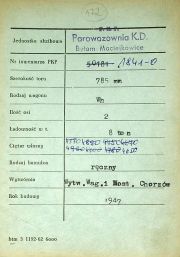 172
P.K.P.
Jednostka służbowa Parowozownia K.D.
Bytom Maciejkowice
Nr inwentarza PKP 1841-0
Szerokość toru 785 mm
Rodzaj wagonu Wh
Ilość osi 2
Ładowność w t. 8 ton
Ciężar własny
Rodzaj hamulca ręczny
Wytwórnia Wytw. Wag. i Most. Chorzów
Rok budowy 1947